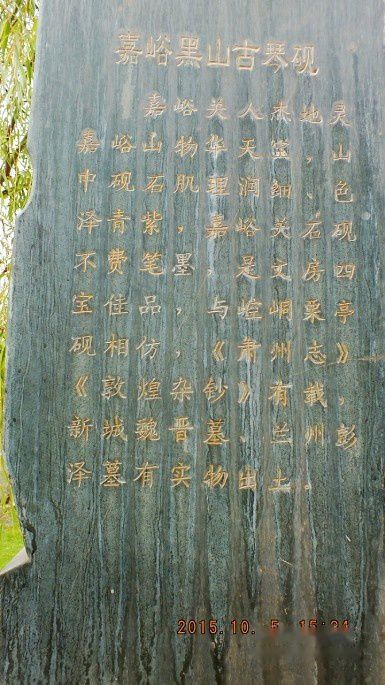 嘉峪黑山古琴砚
嘉峪关人杰地灵
嘉峪山物华天宝，山
中砚石肌理润细、色
泽青紫，嘉峪关石砚
不费笔墨，是文房四
宝佳品，与崆峒粟亭
砚相仿，《肃州志》
《敦煌杂钞》有载，
新城魏晋墓、兰州彭
泽墓有实物出土.
2015.10. 5. 15:24